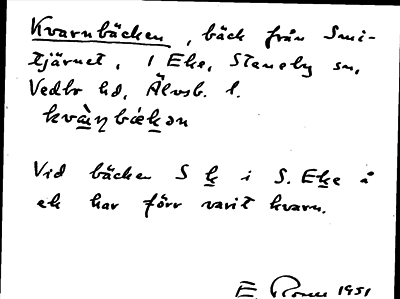 Kvarnbäcken, bäck från Smi-
tjärnet, i Eke, Steneby sn,
Vedbo hd, Älvsb. l.
kvàɳbækən
Vid bäcken S k i S. Eke å
ek har förr varit kvarn.
E. 1951